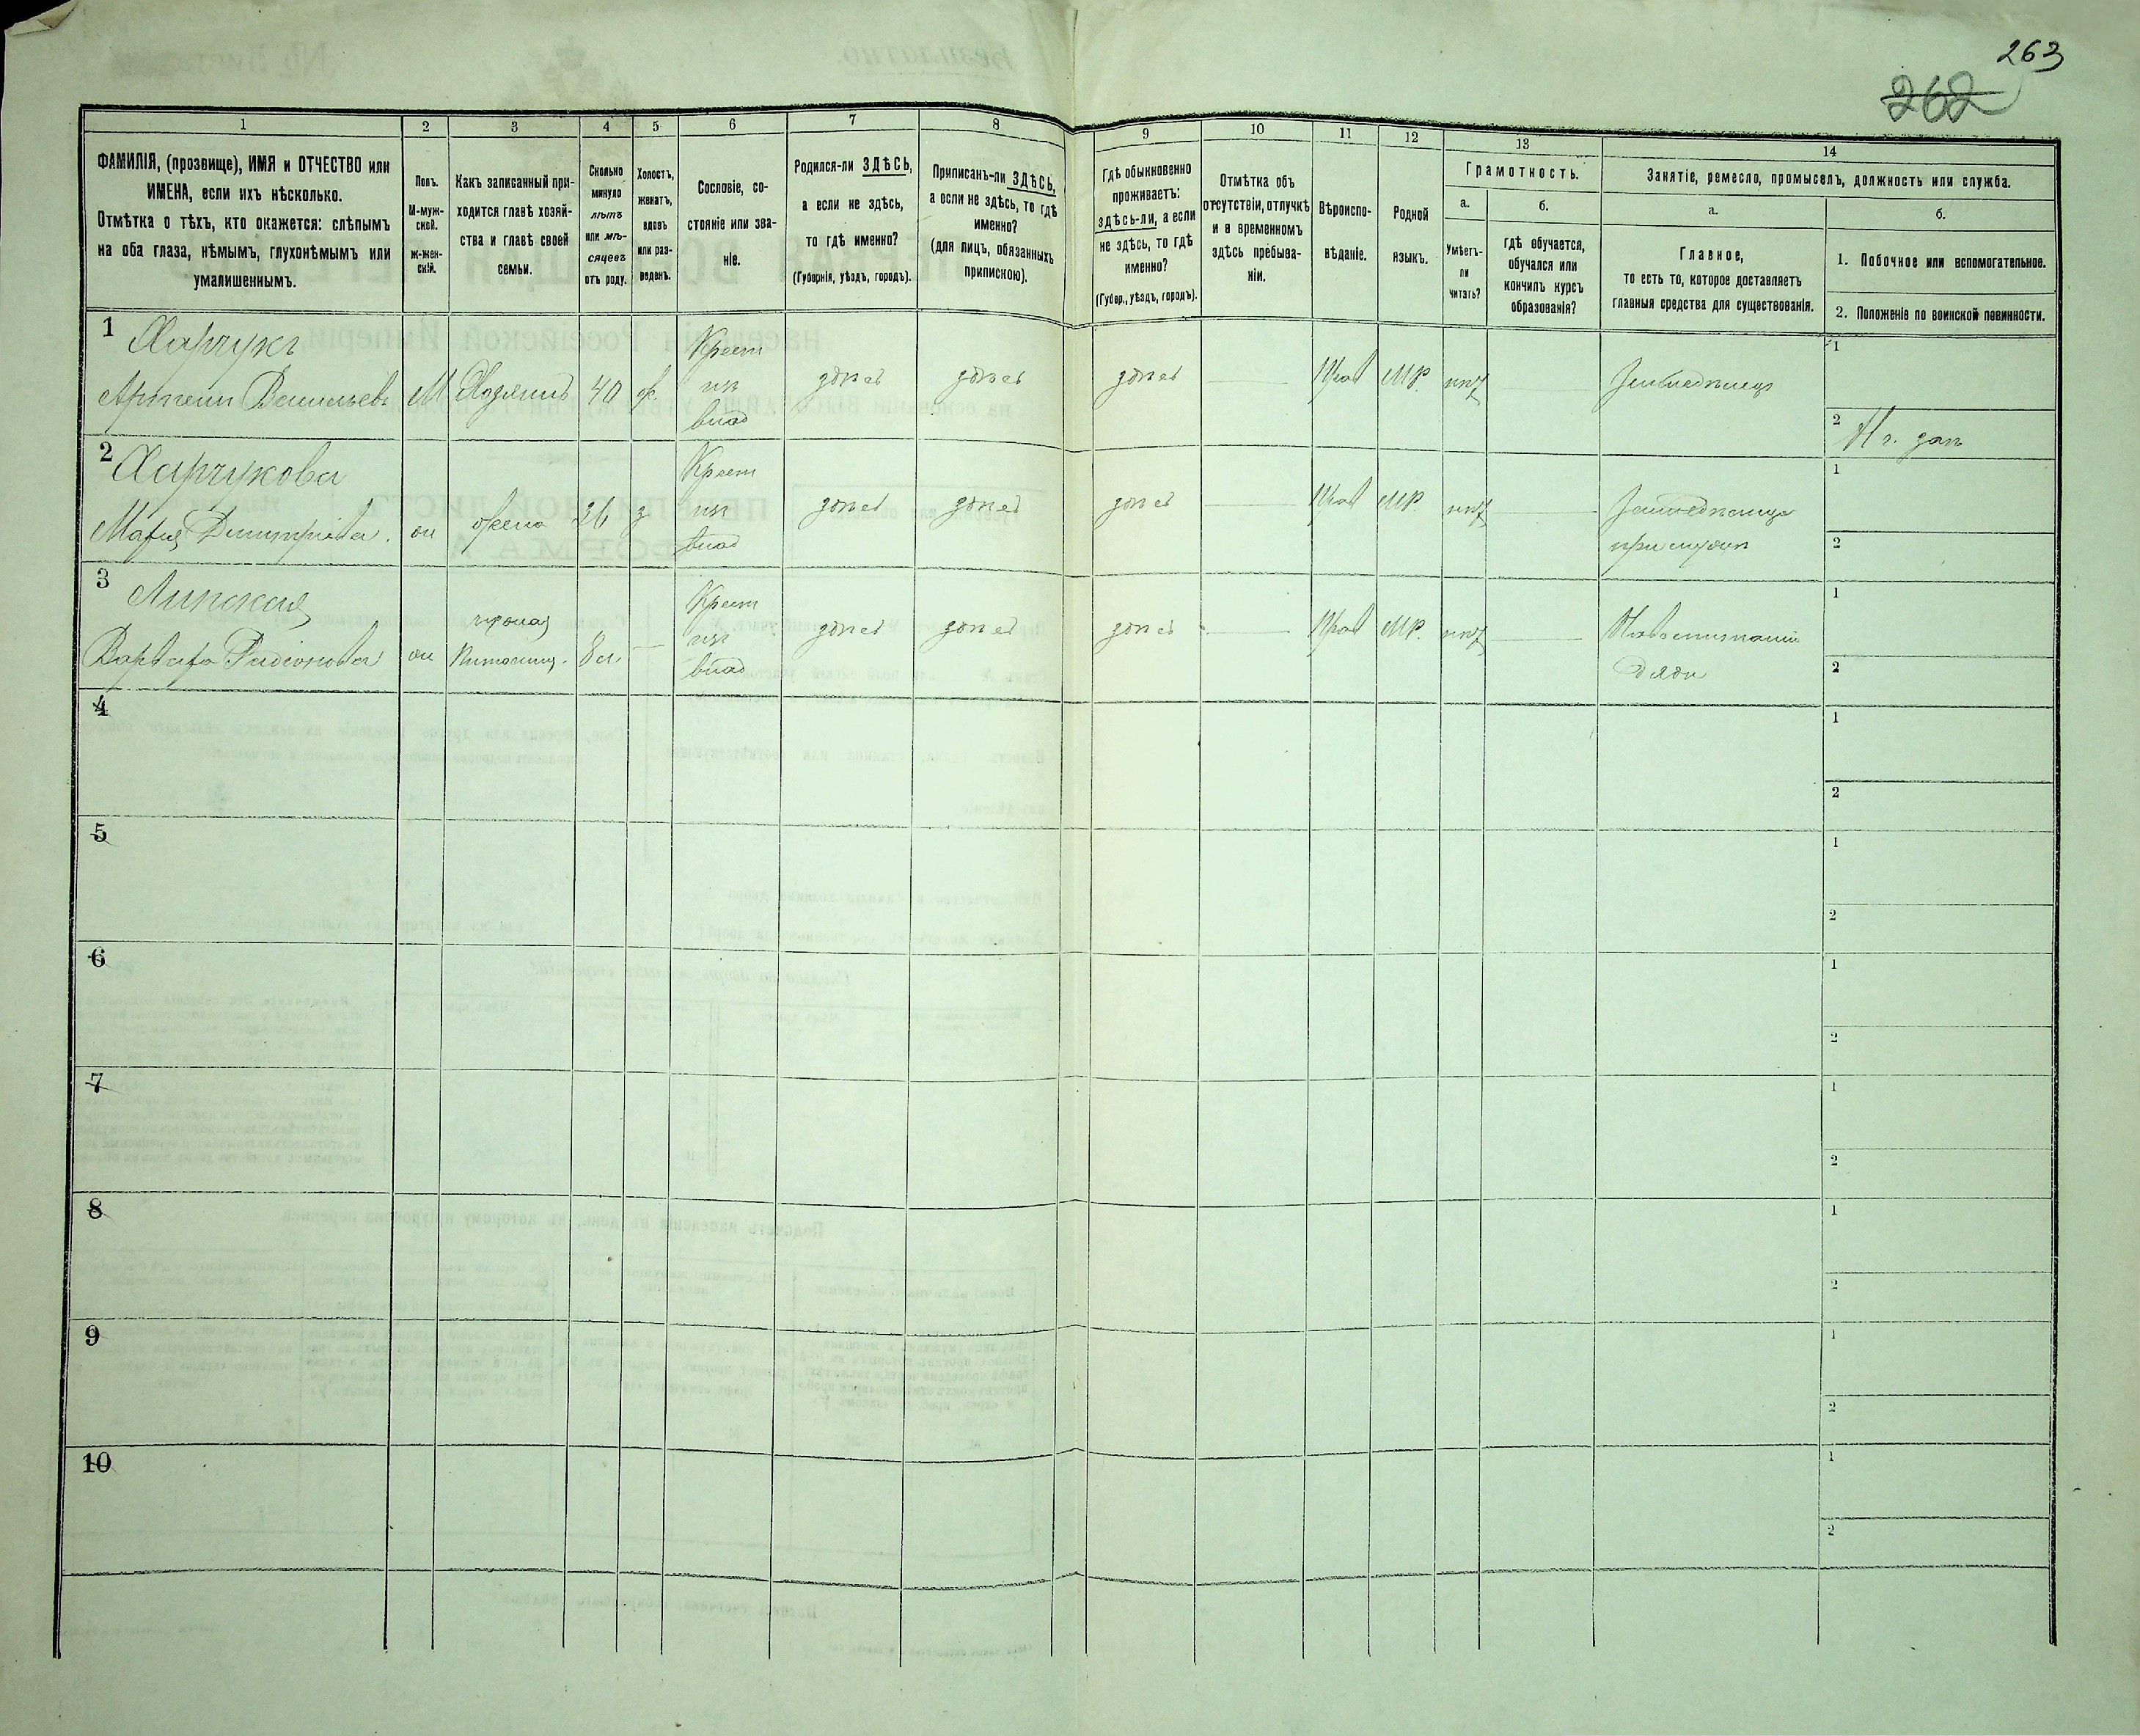 263
262
1
2
3
4
5
6
7
8
9
10
11
12
13
14
ФАМИЛІЯ, (прозвище), ИМЯ и ОТЧЕСТВО или
ИМЕНА, если ихъ нѣсколько.
Отмѣтка о тѣхъ, кто окажется: слѣпымъ
на оба глаза, нѣмымъ, глухонѣмымъ или
умалишеннымъ.
Полъ.
М-муж-
ской.
ж-жен-
скій.
Какъ записанный при-
ходится главѣ хозяй-
ства и главѣ своей
семьи.
Сколько
минуло
лѣтъ
или мѣ-
сяцевъ
отъ роду.
Холостъ,
женатъ,
вдовъ
или раз-
веденъ.
Сословіе, со-
стояніе или зва-
ніе.
Родился-ли ЗДѢСЬ,
а если не здѣсь,
то гдѣ именно?
(Губернія, уѣздъ, городъ).
Приписанъ-ли ЗДѢСЬ,
а если не здѣсь, то гдѣ
именно?
(для лицъ, обязанныхъ
припискою).
Гдѣ обыкновенно
проживаетъ:
ЗДѢСЬ-ли, а если
не здѣсь, то гдѣ
именно?
(Губер., уѣздъ, городъ).
Отмѣтка объ
отсутствіи, отлучкѣ
и о временномъ
здѣсь пребыва-
ніи.
Вѣроиспо-
вѣданіе.
Родной
языкъ.
Грамотность.
а.
Умѣетъ-
ли
читать?
б.
гдѣ обучается,
обучался или
кончилъ курсъ
образованія?
Занятіе, ремесло, промыселъ, должность или служба.
а.
Главное,
то есть то, которое доставляетъ
главныя средства для существованія.
б.
1. Побочное или вспомогательное.
2. Положеніе по воинской повинности.
1 Харчукъ
Артемъ Васильевъ М Хозяинъ 40 ж. Крест из влад здѣсь здѣсь здѣсь Прав МР. нѣт Земледѣлец
1
2
2 Харчукова
Марія Димитріева. ж жена 36 з Крест из влад здѣсь здѣсь здѣсь Прав МР. нѣт Земледѣлица
при мужѣ
1
2
3 Липская
Варвара Радіонова ж 8 м. Крест из влад здѣсь здѣсь здѣсь Прав МР. нѣт
дяди
1
2
4
1
2
5
1
2
6
1
2
7
1
2
8
1
2
9
1
2
10
1
2